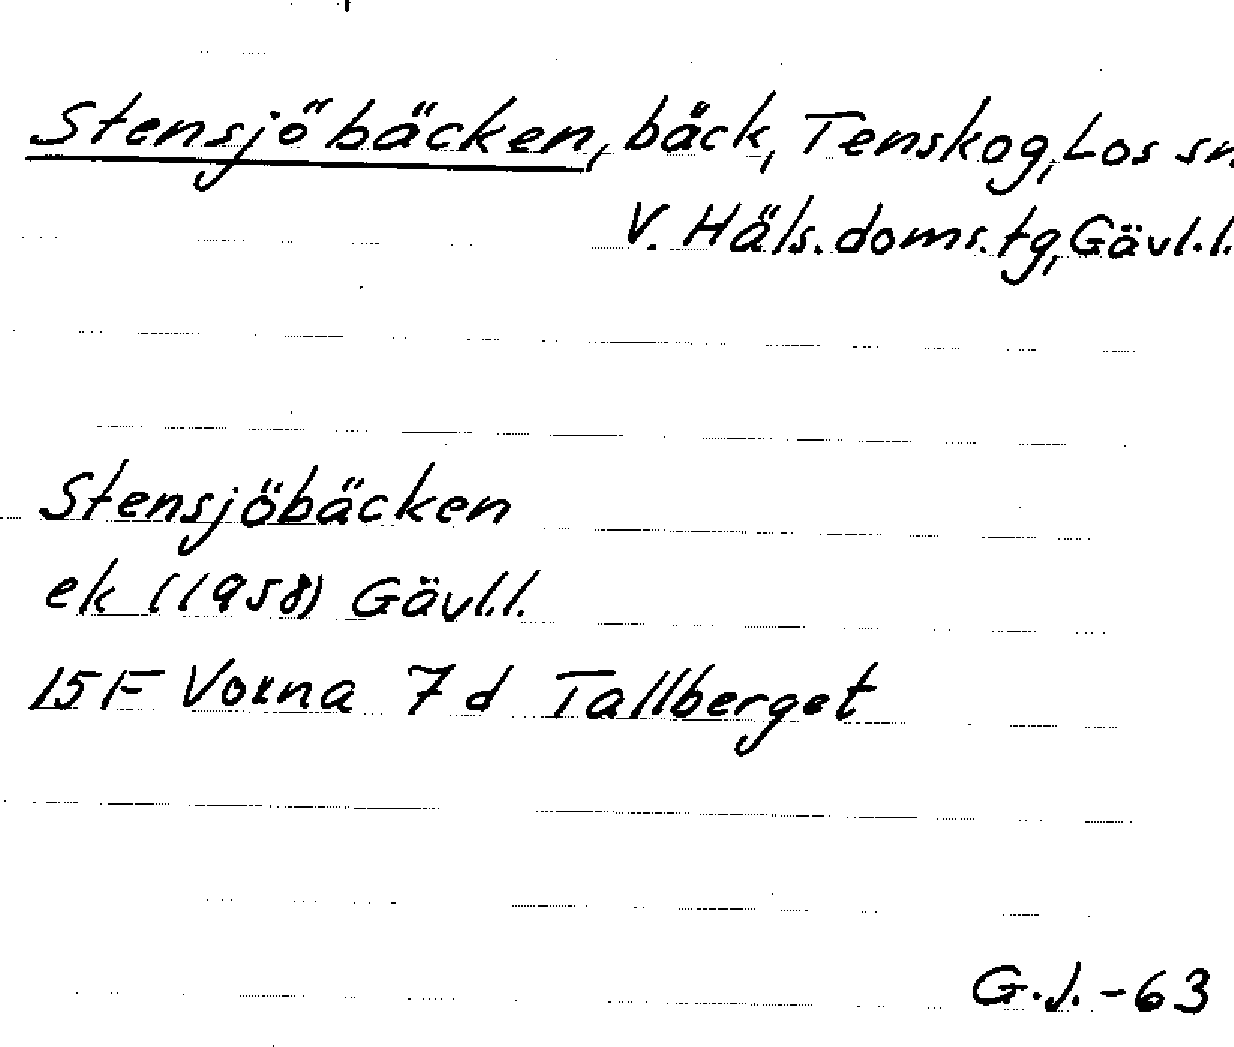 Stensjöbäcken, bäck, Tenskog, Los sn
V. Häls. doms. tg, Gävl. l.
Stensjöbäcken
ek (1958) Gävl. l.
15 F Voxna 7 d Tallberget
G.J. -63